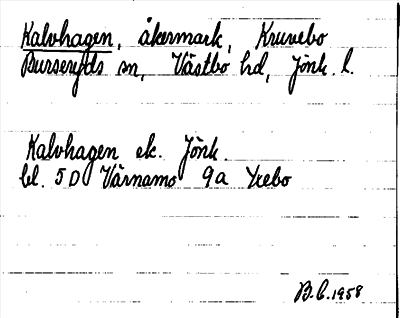 Kalvhagen, åkermark, Kruvebo
Burseryds sn, Västbo hd, Jönk. l.
Kalvhagen ek. Jönk.
bl. 5D Värnamo 9a Yxebo
B.C. 1958